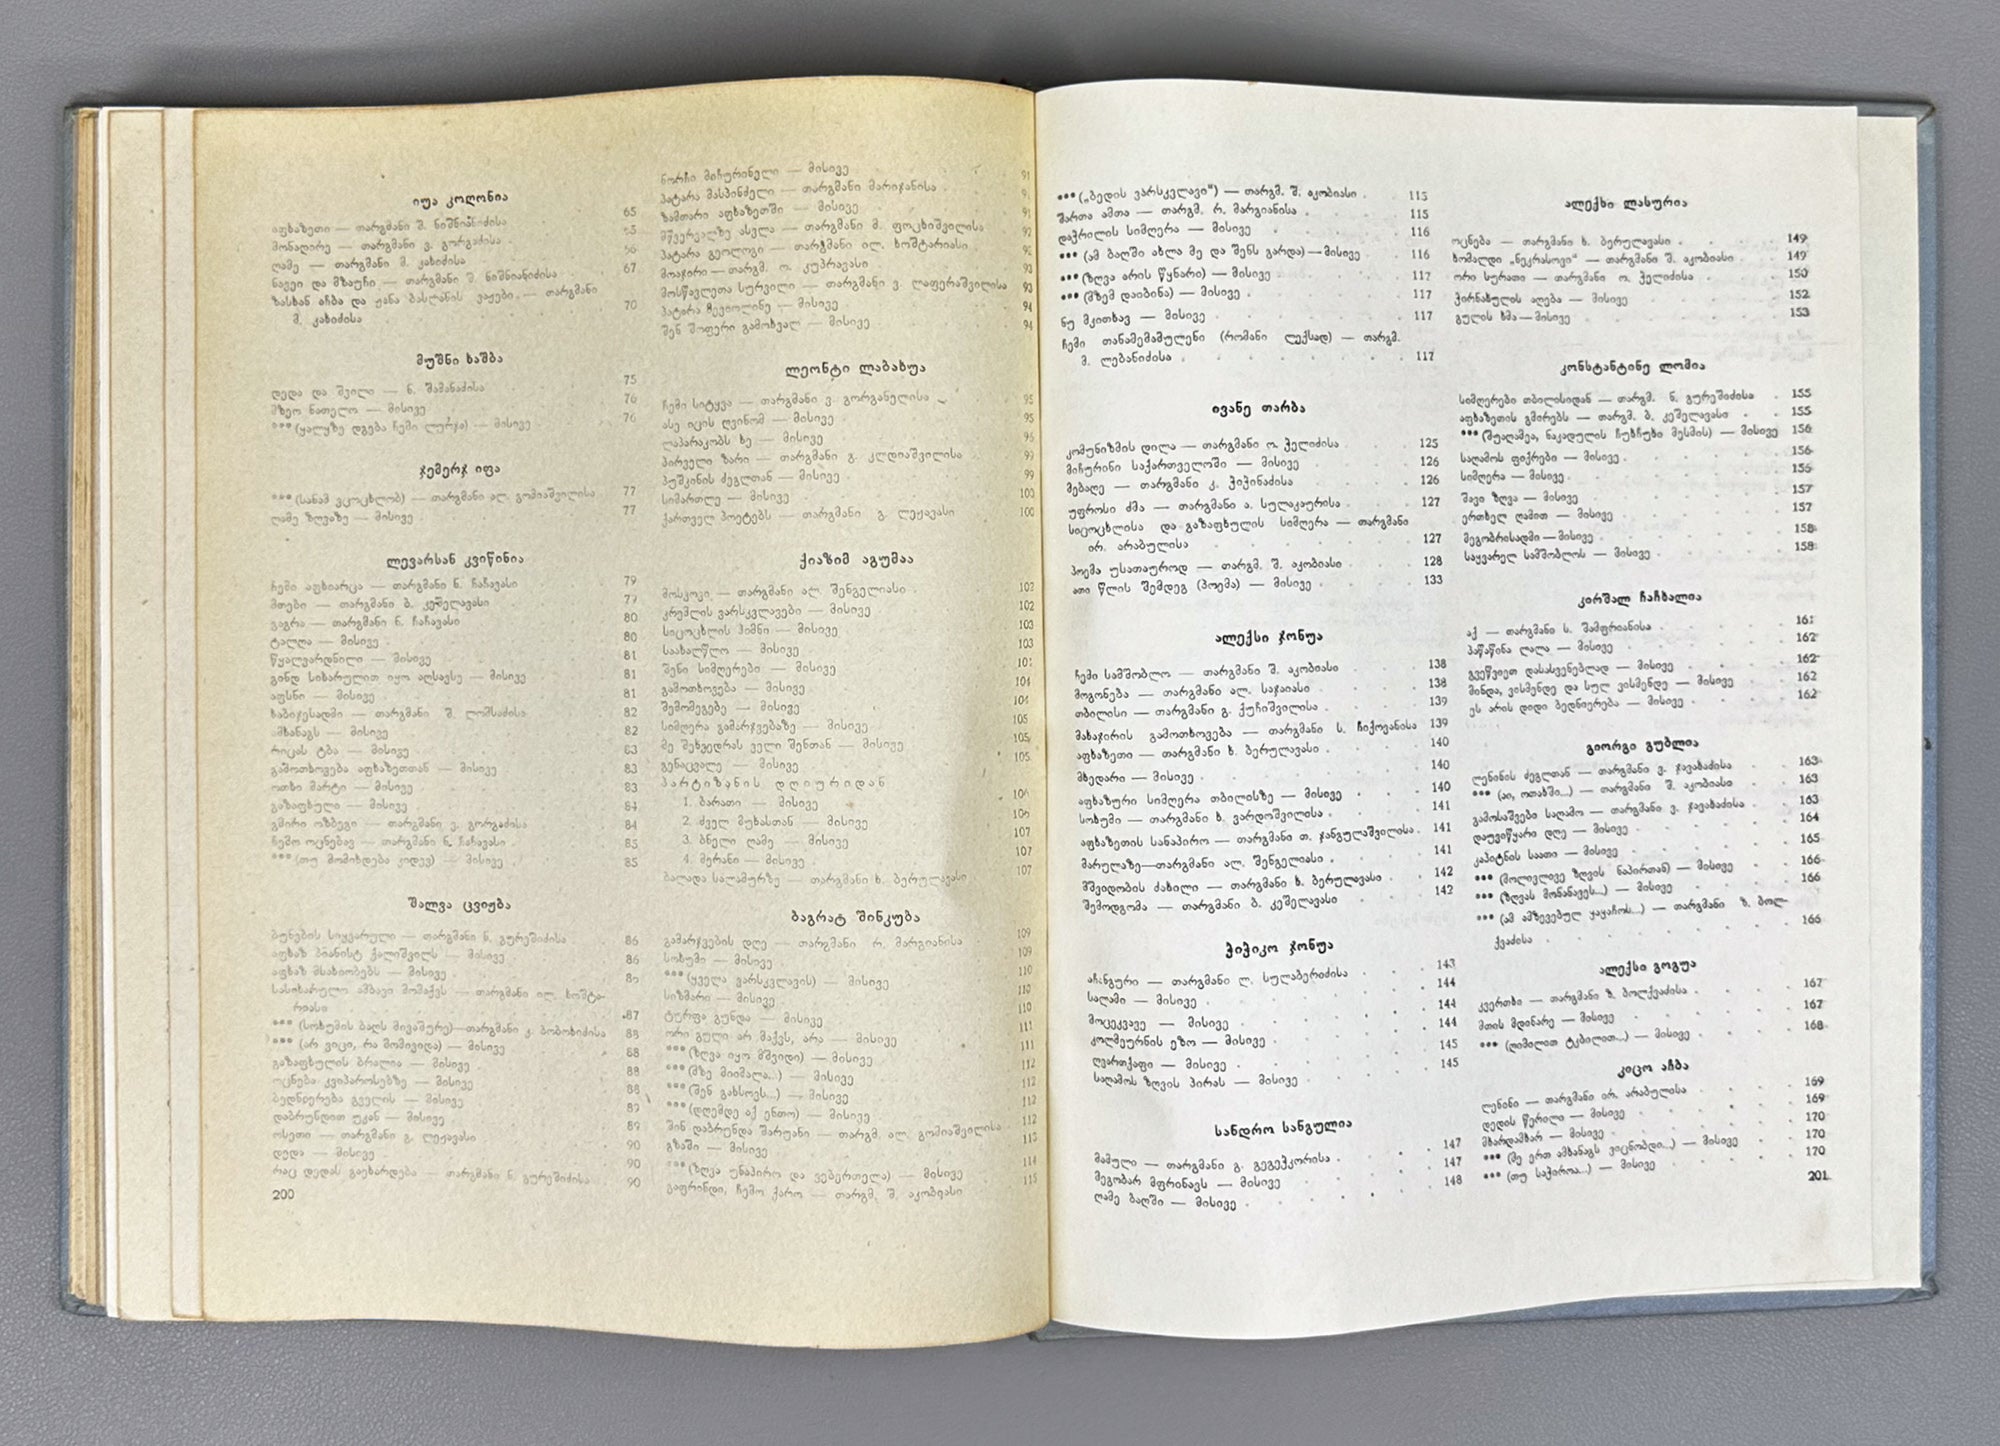 იუა კოღონია
აფხაზეთი — თარგმანი შ. ნიშნიანიძისა 65
მონადირე — თარგმანი ვ. გორგაძისა 65
ღამე — თარგმანი მ. კახიძისა 66
ნავეი და მზაუჩი — თარგმანი შ. ნიშნიანიძისა 67
ზასხან აჩბა და ჟანა ბასლანის ვაჟები — თარგმანი
მ. კახიძისა 70
მუშნი ხაშბა
დედა და შვილი — ნ. შამანაძისა 75
მზეო ნათელო — მისივე 76
*** (ყალყზე დგება ჩემი ლურჯა) — მისივე 76
ჯემერჯ იფა
*** (სანამ ვცოცხლობ) — თარგმანი ალ. გომიაშვილისა 77
ღამე ზღვაზე — მისივე 77
ლევარსან კვიწინია
ჩემი აფხიარცა — თარგმანი ნ. ჩაჩავასი 79
მთები — თარგმანი ბ. კეშელავასი 79
გაგრა — თარგმანი ნ. ჩაჩავასი 80
ტალღა — მისივე 80
წყალვარდნილი — მისივე 81
გინდ სიხარულით იყო აღსავსე — მისივე 81
აფსნი — მისივე 81
ხაბიჯესადმი — თარგმანი შ. ლომსაძისა 82
ამხანაგს — მისივე 82
რიცას ტბა — მისივე 83
გამოთხოვება აფხაზეთთან — მისივე 83
ოთხი მარტი — მისივე 83
გაზაფხული — მისივე 84
გმირი ოზბეგი — თარგმანი ვ. გორგაძისა 84
ჩემო ოცნებავ — თარგმანი ნ. ჩაჩავასი 85
*** (თუ მომიხდება კიდევ) — მისივე 85
შალვა ცვიჟბა
ბუნების სიყვარული — თარგმანი ნ. გურეშიძისა 86
აფხაზ პიანისტ ქალიშვილს — მისივე 86
აფხაზ მსახიობებს — მისივე 86
სასიხარულო ამბავი მომაქვს — თარგმანი ილ. ხოშტა-
რიასი 87
*** (სოხუმის ბაღს მივაშურე)—თარგმანი კ. ბობოხიძისა 88
*** (არ ვიცი, რა მომივიდა) — მისივე 88
გაზაფხულის ბრალია — მისივე 88
ოცნება კვიპაროსებზე — მისივე 88
ბედნიერება გველის — მისივე 89
დაბრუნდით უკან — მისივე 89
ოსეთი — თარგმანი გ. ლეჟავასი 90
დედა — მისივე 90
რაც დედას გაეხარდება — თარგმანი ნ. გურეშიძისა 90
200
ნორჩი მიჩურინელი — მისივე 91
პატარა მასპინძელი — თარგმანი მარიჯანისა 91
ზამთარი აფხაზეთში — მისივე 91
მწვერვალზე ასვლა — თარგმანი მ. ფოცხიშვილისა 92
პატარა გეოლოგი — თარგმანი ილ. ხოშტარიასი 92
მოაჯირი — თარგმ. ო. კუპრავასი 93
მოსწავლეთა სურვილი — თარგმანი ვ. ლაფერაშვილისა 93
პატარა მევიოლინე — მისივე 94
შენ შოფერი გამოხვალ — მისივე 94
ლეონტი ლაბახუა
ჩემი სიტყვა — თარგმანი ვ. გორგანელისა 95
ასე იცის ღვინომ — მისივე 95
ლაპარაკობს ხე — მისივე 96
პირველი ზარი — თარგმანი გ. კლდიაშვილისა 99
პუშკინის ძეგლთან — მისივე 99
სიმართლე — მისივე 100
ქართველ პოეტებს — თარგმანი გ. ლეჟავასი 100
ქიაზიმ აგუმაა
მოსკოვი — თარგმანი ალ. შენგელიასი 102
კრემლის ვარსკვლავები — მისივე 102
სიცოცხლის ჰიმნი — მისივე 103
საახალწლო — მისივე 103
შენი სიმღერები — მისივე 101
გამოთხოვება — მისივე 104
შემომეგებე — მისივე 104
სიმღერა გამარჯვებაზე — მისივე 105
მე შეხვედრას ველი შენთან — მისივე 105
გენაცვალე — მისივე 105
პარტიზანის დღიურიდან
1. ბარათი — მისივე 106
2. ძველ მუხასთან — მისივე 106
3. ბნელი ღამე — მისივე 107
4. მერანი — მისივე 107
ბალადა სალამურზე — თარგმანი ხ. ბერულავასი 107
ბაგრატ შინკუბა
გამარჯვების დღე — თარგმანი რ. მარგიანისა 109
სოხუმი — მისივე 109
*** (ყველა ვარსკვლავის) — მისივე 110
სიზმარი — მისივე 110
ტურფა გუნდა — მისივე 110
ორი გული არ მაქვს, არა — მისივე 111
*** (ზღვა იყო მშვიდი) — მისივე 111
*** (მზე მიიმალა...) — მისივე 112
*** (შენ გახსოვს...) — მისივე 112
*** (დღემდე აქ ენთო) — მისივე 112
შინ დაბრუნდა შარუანი — თარგმ. ალ. გომიაშვილისა 112
გზაში — მისივე 113
*** (ზღვა უნაპირო და ვებერთელა) — მისივე 114
გაფრინდი, ჩემო ქარო — თარგმ. შ. აკობიასი 115
*** („ბედის ვარსკვლავი“) — თარგმ. შ. აკობიასი 115
შართა ამთა — თარგმ. რ. მარგიანისა 115
დაჭრილის სიმღერა — მისივე 116
*** (ამ ბაღში ახლა მე და შენს გარდა) — მისივე 116
*** (ზღვა არის წყნარი) — მისივე 117
*** (მზემ დაიბინა) — მისივე 117
ნუ მკითხავ — მისივე 117
ჩემი თანამემამულენი (რომანი ლექსად) — თარგმ.
მ. ლებანიძისა 117
ივანე თარბა
კომუნიზმის დილა — თარგმანი ო. ჭელიძისა 125
მიჩურინი საქართველოში — მისივე 126
მებაღე — თარგმანი კ. ჭიჭინაძისა 126
უფროსი ძმა — თარგმანი ა. სულაკაურისა 127
სიცოცხლისა და გაზაფხულის სიმღერა — თარგმანი
ირ. არაბულისა 127
პოემა უსათაუროდ — თარგმ. შ. აკობიასი 128
ათი წლის შემდეგ (პოემა) — მისივე 133
ალექსი ჯონუა
ჩემი სამშობლო — თარგმანი შ. აკობიასი 138
მოგონება — თარგმანი ალ. საჯაიასი 138
თბილისი — თარგმანი გ. ქუჩიშვილისა 139
მახაჯირის გამოთხოვება — თარგმანი ს. ჩიქოვანისა 139
აფხაზეთი — თარგმანი ხ. ბერულავასი 140
მხედარი — მისივე 140
აფხაზური სიმღერა თბილისზე — მისივე 140
სოხუმი — თარგმანი ხ. ვარდოშვილისა 141
აფხაზეთის სანაპირო — თარგმანი თ. ჯანგულაშვილისა 141
მარულაზე—თარგმანი ალ. შენგელიასი 141
მშვიდობის ძახილი — თარგმანი ხ. ბერულავასი 142
შემოდგომა — თარგმანი ბ. კეშელავასი 142
ჭიჭიკო ჯონუა
აჩანგური — თარგმანი ლ. სულაბერიძისა 143
სალამი — მისივე 144
მოცეკვავე — მისივე 144
კოლმეურნის ეზო — მისივე 144
ღვართქაფი — მისივე 145
საღამოს ზღვის პირას — მისივე 145
სანდრო სანგულია
მამული — თარგმანი გ. გეგეჭკორისა 147
მეგობარ მფრინავს — მისივე 147
ღამე ბაღში — მისივე 148
ალექსი ლასურია
ოცნება — თარგმანი ხ. ბერულავასი 149
ხომალდი „ნეკრასოვი“ — თარგმანი შ. აკობიასი 149
ორი სურათი — თარგმანი ო. ჭელიძისა 150
ჭირნახულის აღება — მისივე 152
გულის ხმა—მისივე 153
კონსტანტინე ლომია
სიმღერები თბილისიდან — თარგმ. ნ. გურეშიძისა 155
აფხაზეთის გმირებს — თარგმ. ბ. კეშელავასი 155
*** (შუაღამეა, ნაკადულის ჩუხჩუხი მესმის) — მისივე 156
საღამოს ფიქრები — მისივე 156
სიმღერა — მისივე 156
შავი ზღვა — მისივე 157
ერთხელ ღამით — მისივე 157
მეგობრისადმი — მისივე 158
საყვარელ სამშობლოს — მისივე 158
კირშალ ჩაჩხალია
აქ — თარგმანი ს. შამფრიანისა 161
პაწაწინა ლალა — მისივე 162
გვეწვიეთ დასასვენებლად — მისივე 162
მინდა, ვისმენდე და სულ ვისმენდე — მისივე 162
ეს არის დიდი ბედნიერება — მისივე 162
გიორგი გუბლია
ლენინის ძეგლთან — თარგმანი ვ. ჯავახაძისა 163
*** (აი, ოთახში...) — თარგმანი შ. აკობიასი 163
გამოსაშვები საღამო — თარგმანი ვ. ჯავახაძისა 163
დაუვიწყარი დღე — მისივე 164
კაპიტნის საათი — მისივე 165
*** (მოლივლივე ზღვის ნაპირთან) — მისივე 166
*** (ზღვას მონანავეს...) — მისივე 166
*** (ამ ამზევებულ ყაყაჩოს...) — თარგმანი ზ. ბოლ-
ქვაძისა 166
ალექსი გოგუა
კვერთხი — თარგმანი ზ. ბოლქვაძისა 167
მთის მდინარე — მისივე 167
*** (ღიმილით ტკბილით...) — მისივე 168
კიცო აჩბა
ლენინი — თარგმანი ირ. არაბულისა 169
დედის წერილი — მისივე 169
მხარდამხარ — მისივე 170
*** (მე ერთ ამხანაგს ვიცნობდი...) — მისივე 170
*** (თუ საჭიროა...) — მისივე 170
201